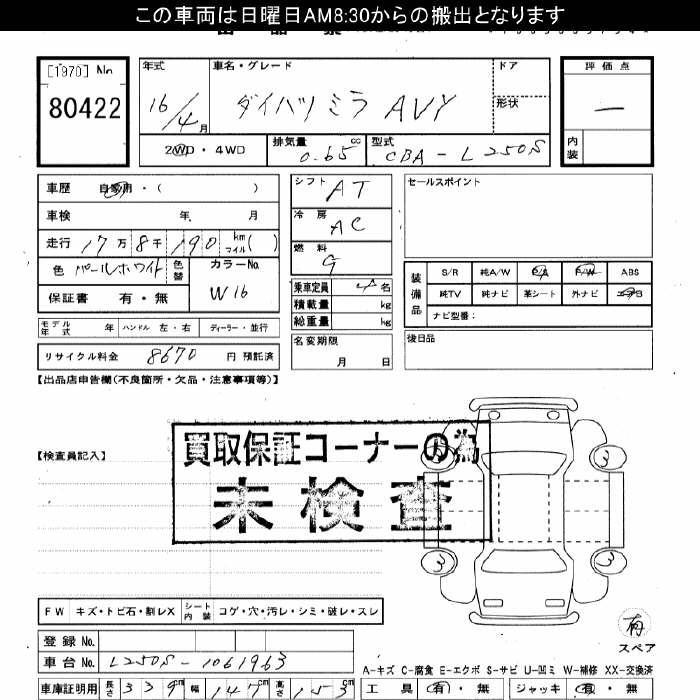 この車両は日曜日AM8:30からの搬出となります
[1970] No
80422
年式 車名・グレード ドア 評価点
16/4月 ダイハツ ミラ AVY 形状 ―
2WD・4WD 排気量 0.65 cc 型式 CBA-L250S 内装
車歴 自家用・( )
シフト AT
セールスポイント
車検 年 月
冷房 AC
走行 17万8千190 km マイル( )
燃料 G
色 パールホワイト 色替 カラーNo. W16
装備品 S/R 純A/W P/S P/W ABS
純TV 純ナビ 革シート 外ナビ エアB
ナビ型番:
保証書 有・無
乗車定員 4名
積載量 kg
総重量 kg
モデル年式 年 ハンドル 左・右 ディーラー・並行
名変期限 月 日
後日品
リサイクル料金 8670 円 預託済
【出品店申告欄(不良箇所・欠品・注意事項等)】
【検査員記入】
買取保証コーナーの為
未検査
3
3
3
FW キズ・トビ石・割レX シート内装 コゲ・穴・汚レ・シミ・破レ・スレ
有
スペア
登録 No.
車台 No. L250S-1061963
A-キズ C-腐食 E-エクボ S-サビ U-凹ミ W-補修 XX-交換済
車庫証明用 長さ 339cm 幅 147cm 高さ 153cm
工具 有・無 ジャッキ 有・無